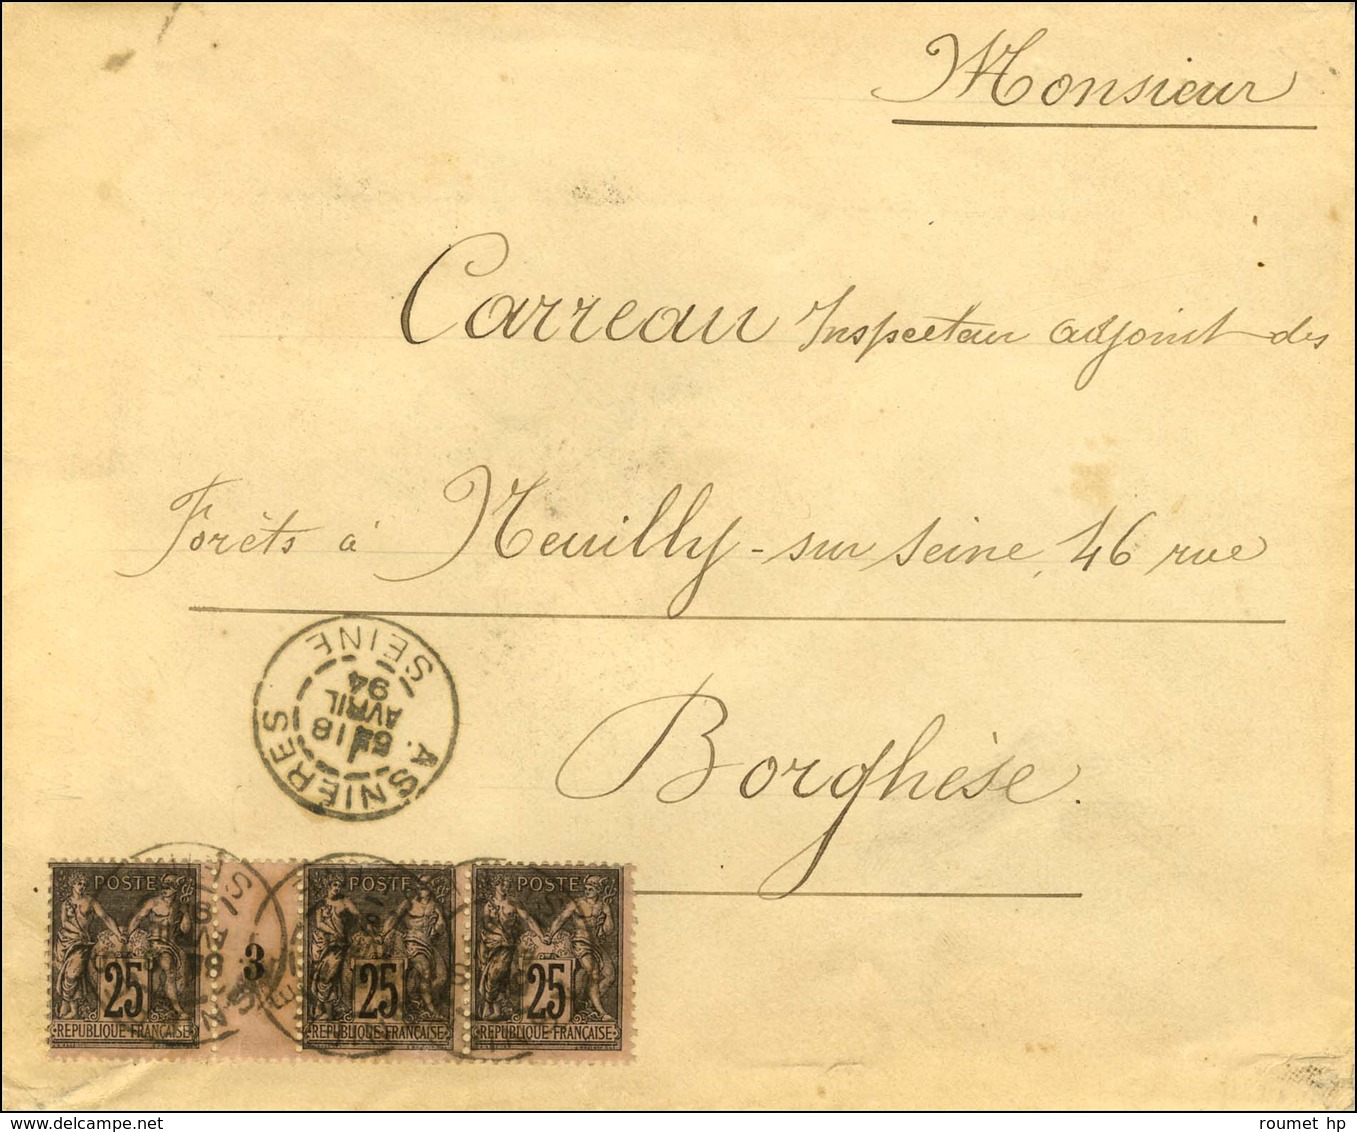 Monsieur
Carreau Inspecteur adjoint des
Forêts à Neuilly-sur Seine, 46 rue
Borghèse.
ASNIÈRES
18
AVRIL
94
SEINE
POSTE
25
REPUBLIQUE FRANÇAISE
3
POSTE
25
REPUBLIQUE FRANÇAISE
POSTE
25
REPUBLIQUE FRANÇAISE
roumet hp